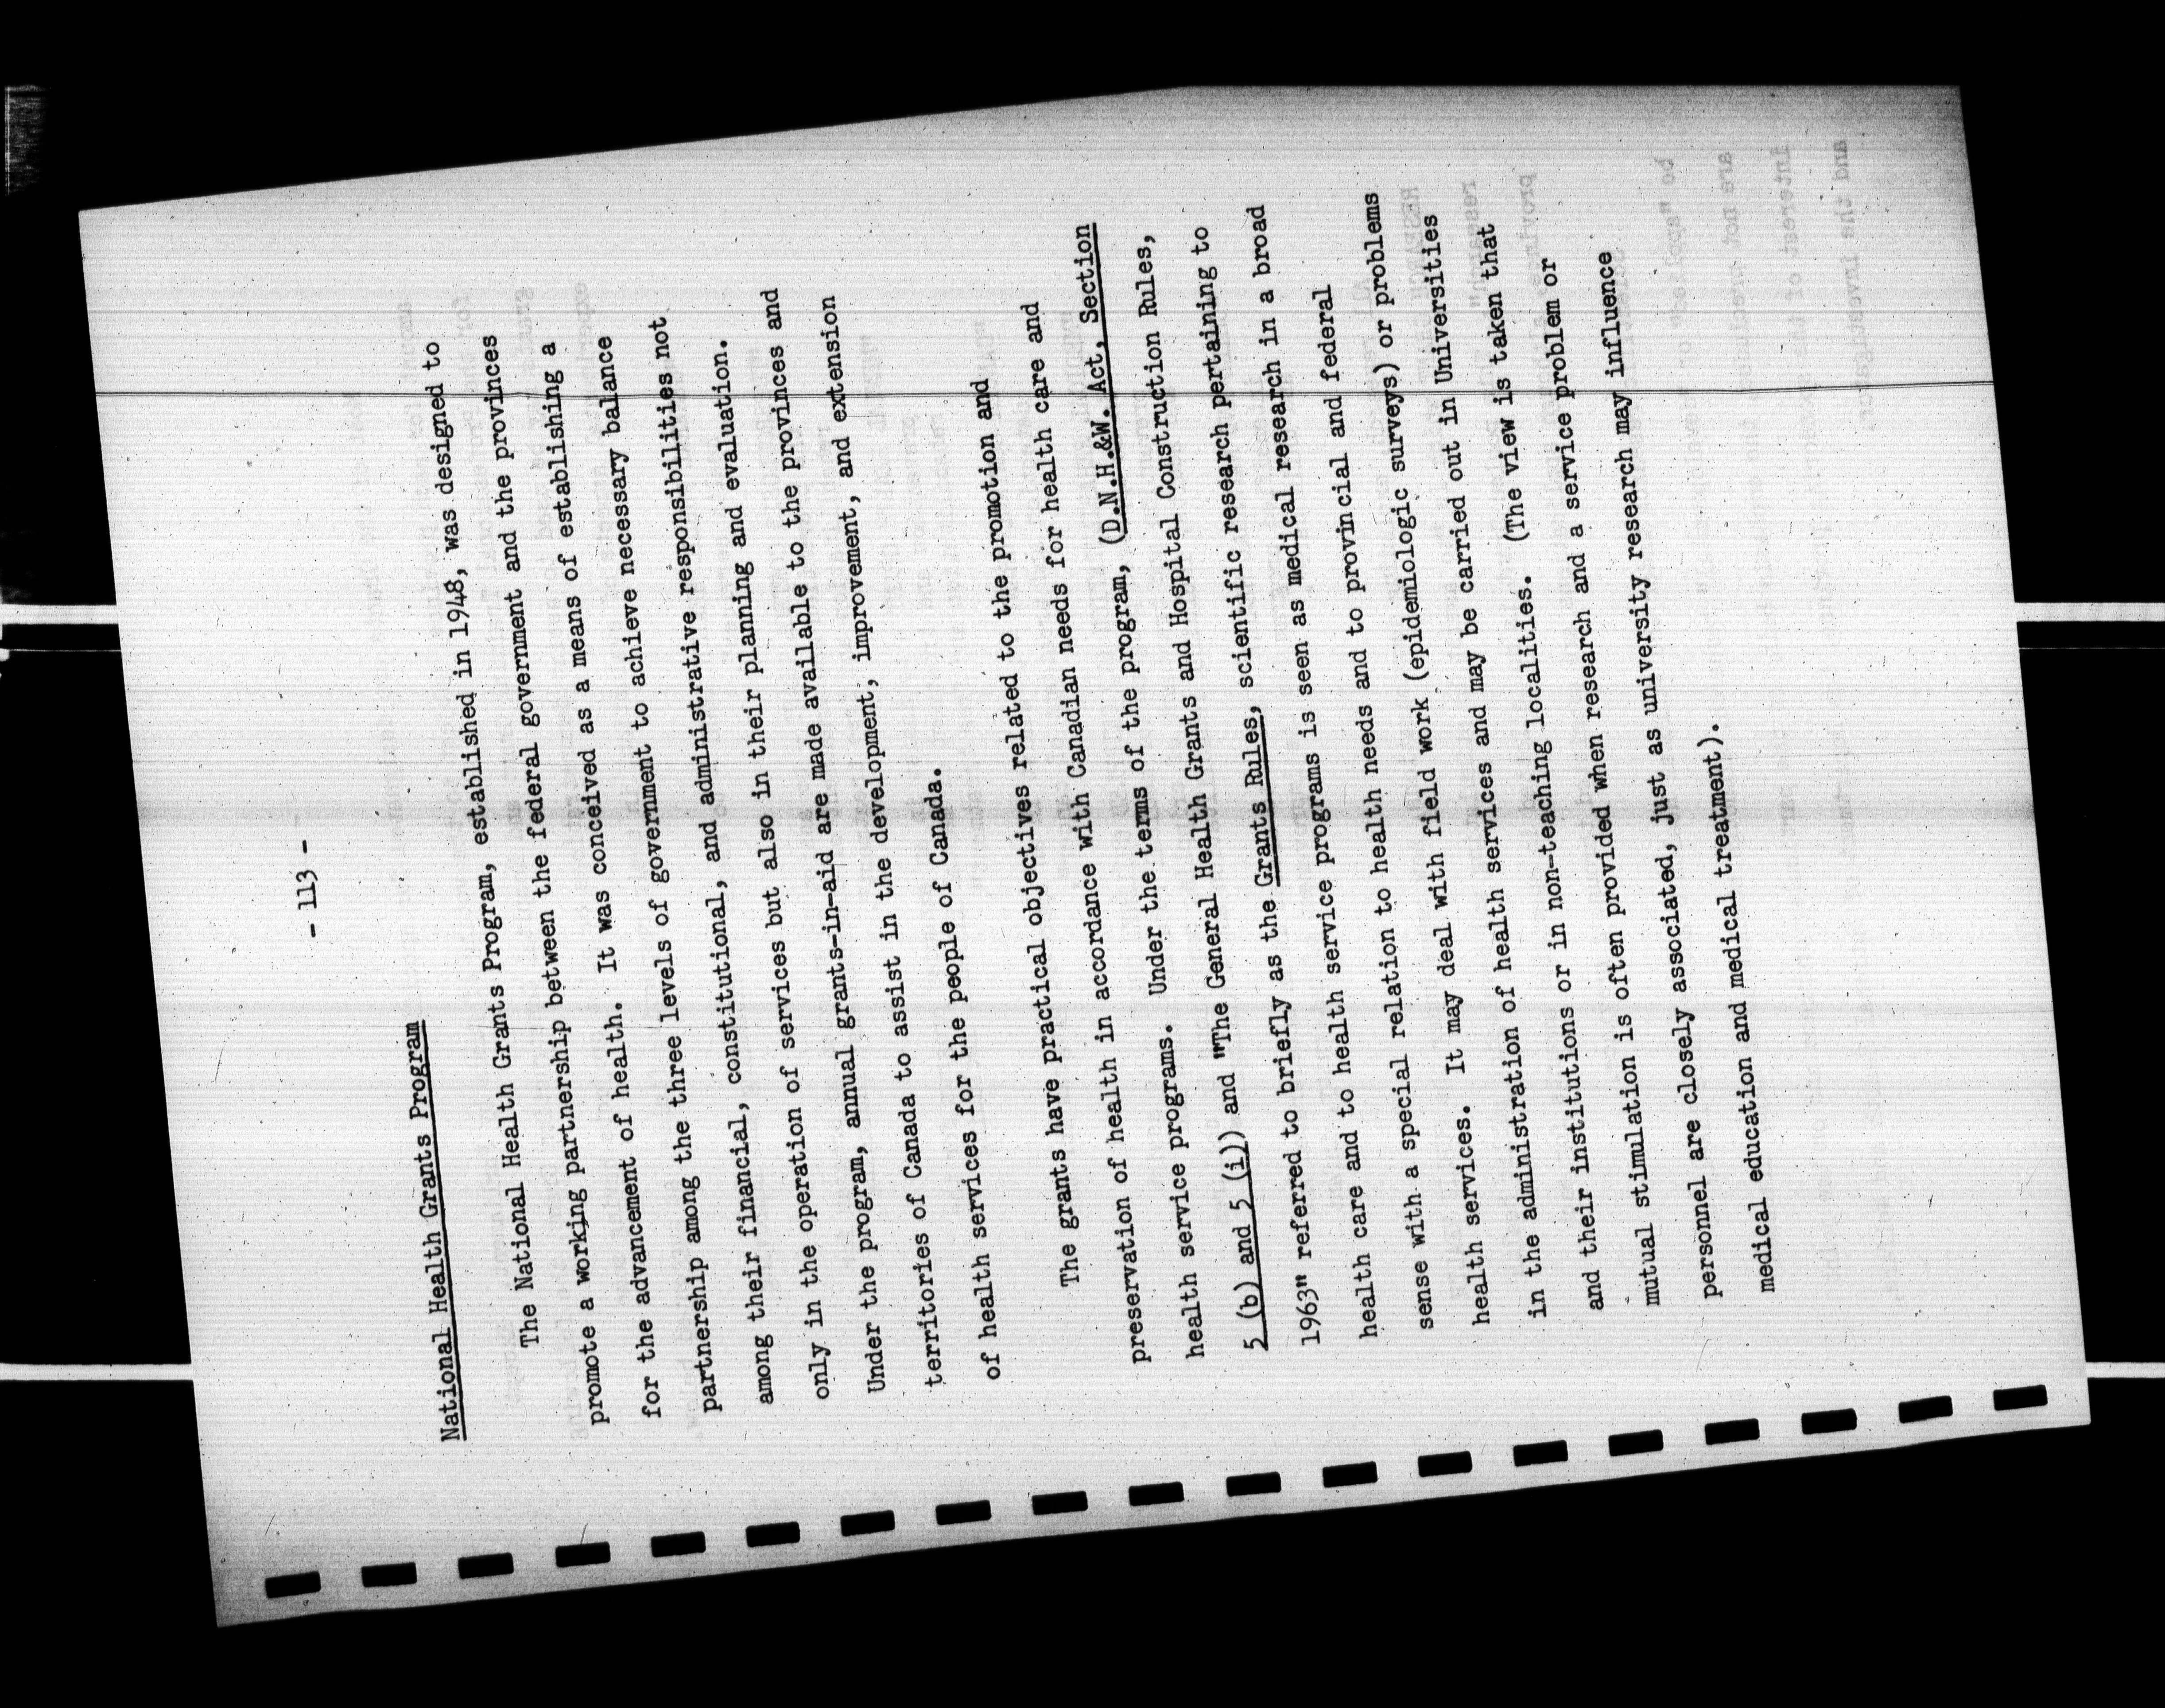 - 113 -
National Health Grants Program
The National Health Grants Program, established in 1948, was designed to
promote a working partnership between the federal government and the provinces
for the advancement of health. It was conceived as a means of establishing a
partnership among the three levels of government to achieve necessary balance
among their financial, constitutional, and administrative responsibilities not
only in the operation of services but also in their planning and evaluation.
Under the program, annual grants-in-aid are made available to the provinces and
territories of Canada to assist in the development, improvement, and extension
of health services for the people of Canada.
The grants have practical objectives related to the promotion and
preservation of health in accordance with Canadian needs for health care and
health service programs. Under the terms of the program, (D.N.H.&W. Act, Section
5 (b) and 5 (i)) and "The General Health Grants and Hospital Construction Rules,
1963" referred to briefly as the Grants Rules, scientific research pertaining to
health care and to health service programs is seen as medical research in a broad
sense with a special relation to health needs and to provincial and federal
health services. It may deal with field work (epidemiologic surveys) or problems
in the administration of health services and may be carried out in Universities
and their institutions or in non-teaching localities. (The view is taken that
mutual stimulation is often provided when research and a service problem or
personnel are closely associated, just as university research may influence
medical education and medical treatment).